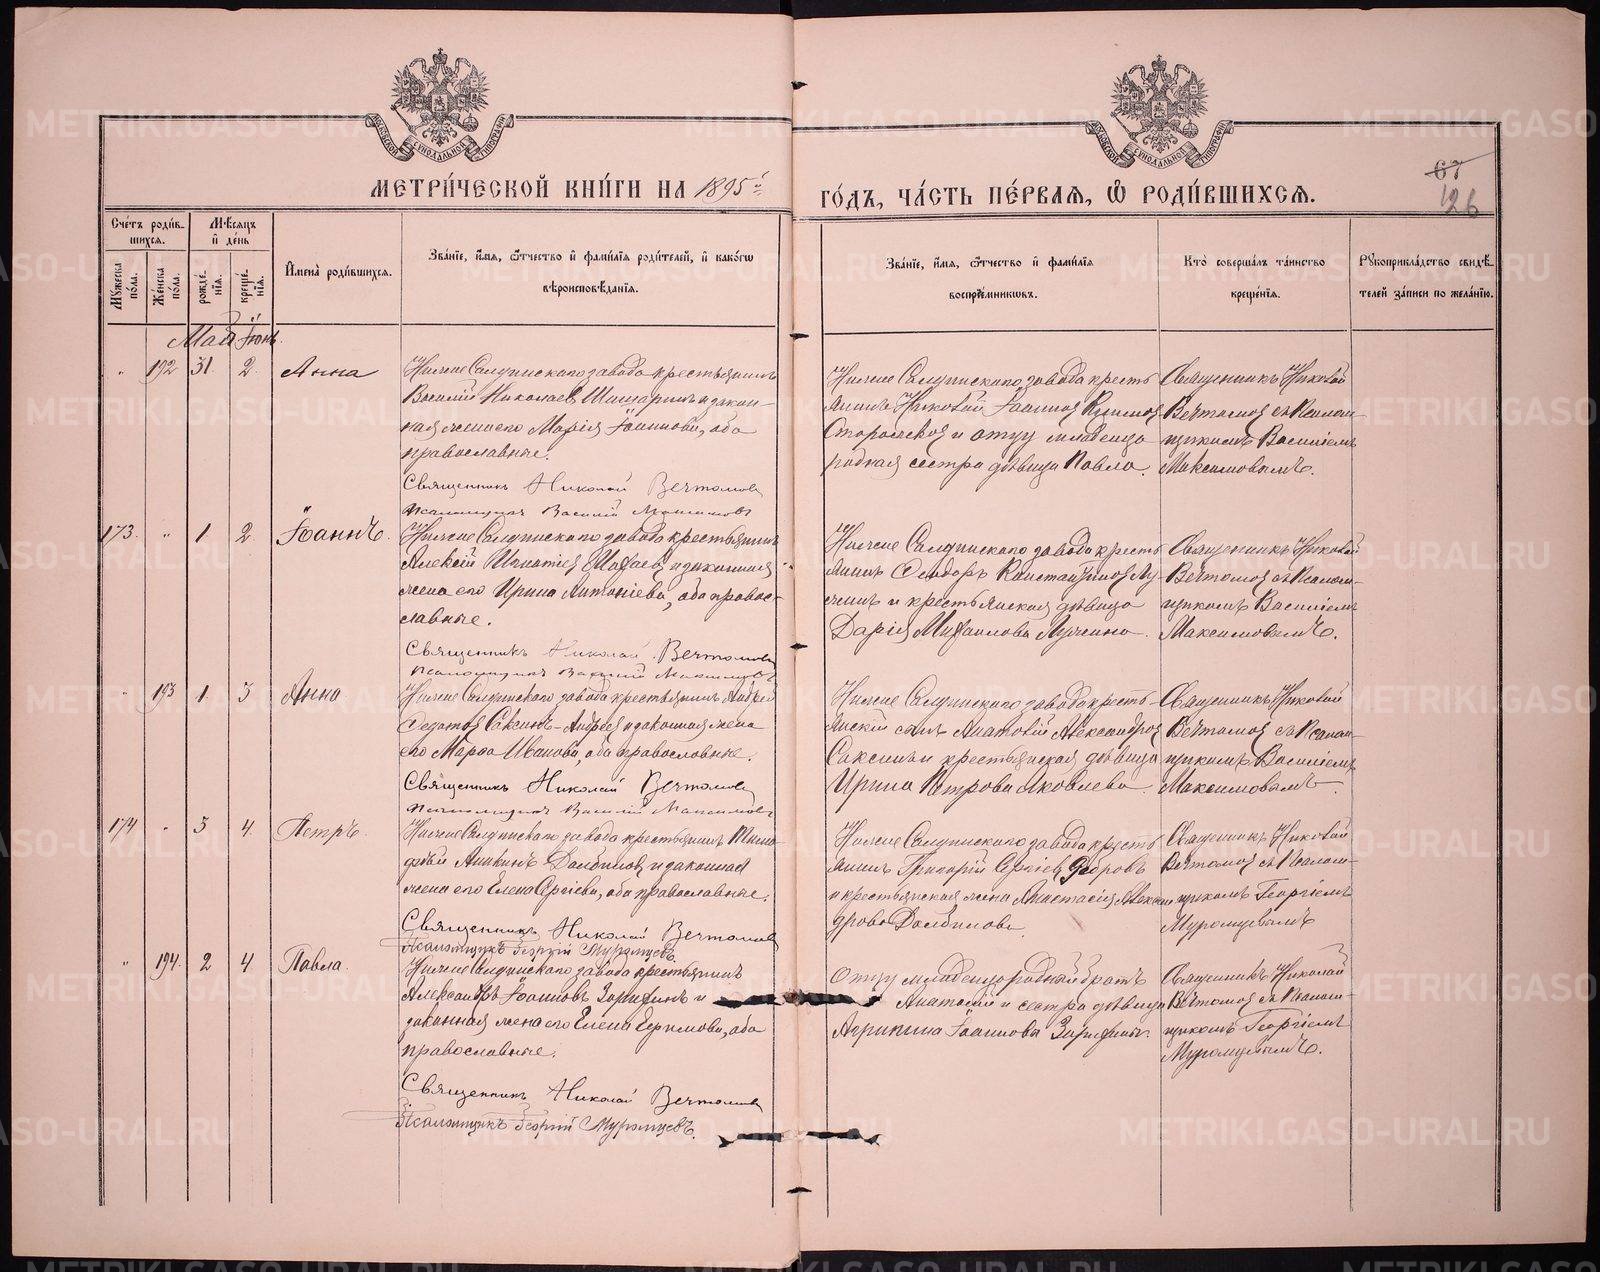 МОСКОВСКОЙ СУНОДАЛЬНОЙ ТИПОГРАФІИ
МОСКОВСКОЙ СУНОДАЛЬНОЙ ТИПОГРАФІИ
МЕТРИ́ЧЕСКОЙ КНИ́ГИ НА 1895й
ГО́ДЪ, ЧА́СТЬ ПЕ́РВАЯ, Ѡ РОДИ́ВШИХСЯ.
67
126
Сче́тъ роди́в-
шихся.
Мѣ́сяцъ
и҆ де́нь
Мꙋ́жеска по́ла.
Же́нска по́ла.
рожде́-
нїя.
креще́-
нїя.
И҆мена̀ роди́вшихся.
Зва́нїе, и҆́мя, ѻ҆́тчество и҆ фами́лїя роди́телей, и҆ како́гѡ
вѣроисповѣ́данїя.
Зва́нїе, и҆́мя, ѻ҆́тчество и҆ фами́лїя
воспрїе́мникѡвъ.
Кто̀ соверша́лъ та́инство
креще́нїя.
Рꙋкоприкла́дство свидѣ́-
телей за́писи по жела́нїю.
Май Іюнь.
" 192 31. 2. Анна
Нижне Салдинскаго завода крестьянинъ
Василій Николаевъ и закон-
ная жена его Марія Іоаннова, оба
православные.
Священникъ Николай Вечтомовъ
Псаломщикъ Василій Максимовъ
Нижне Салдинскаго завода кресть
янинъ Николай Іоанновъ
и отцу младенца
родная сестра дѣвица Павла.
Священникъ Николай
Вечтомовъ съ Псалом-
щикомъ Василіемъ
Максимовымъ.
173. " 1 2. Іоаннъ.
Нижне Салдинскаго завода крестьянинъ
Алексій Игнатіевъ и законная
жена его Ирина Антоніева, оба правос-
лавные.
Священникъ Николай Вечтомовъ
Псаломщикъ Василій Максимовъ
Нижне Салдинскаго завода кресть
янинъ Ѳеодоръ Константиновъ Лу-
и крестьянская дѣвица
Дарія Михаилова
Священникъ Николай
Вечтомовъ съ Псалом-
щикомъ Василіемъ
Максимовымъ.
" 193 1. 3 Анна
Нижне Салдинскаго завода крестьянинъ Андрей
и законная жена
его Марѳа Иванова, оба православные.
Священникъ Николай Вечтомовъ
Псаломщикъ Василій Максимовъ
Нижне Салдинскаго завода кресть-
янскій сынъ Анатолій Александровъ
и крестьянская дѣвица
Ирина Петрова Яковлева
Священникъ Николай
Вечтомовъ съ Псалом-
щикомъ Василіемъ
Максимовымъ.
174 " 3 4. Петръ.
Нижне Салдинскаго завода крестьянинъ Тимо-
ѳей и законная
жена его Елена Сергіева, оба православные.
Священникъ Николай Вечтомовъ
Псаломщикъ Георгій Муромцевъ.
Нижне Салдинскаго завода кресть
янинъ Григорій Сергіевъ
и крестьянская жена Анастасія Алексан
дрова
Священникъ Николай
Вечтомовъ съ Псалом-
щикомъ Георгіемъ
Муромцевымъ
" 194. 2 4 Павла.
Нижне Салдинскаго завода крестьянинъ
Александръ Іоанновъ и
законная жена его Елена Ефимова, оба
православные.
Священникъ Николай Вечтомовъ
Псаломщикъ Георгій Муромцевъ.
Отцу младенца родной братъ
Анатолій и сестра дѣвица
Агрипина Іоаннова
Священникъ Николай
Вечтомовъ съ Псалом-
щикомъ Георгіемъ
Муромцевымъ.
METRIKI.GASO-URAL.RU